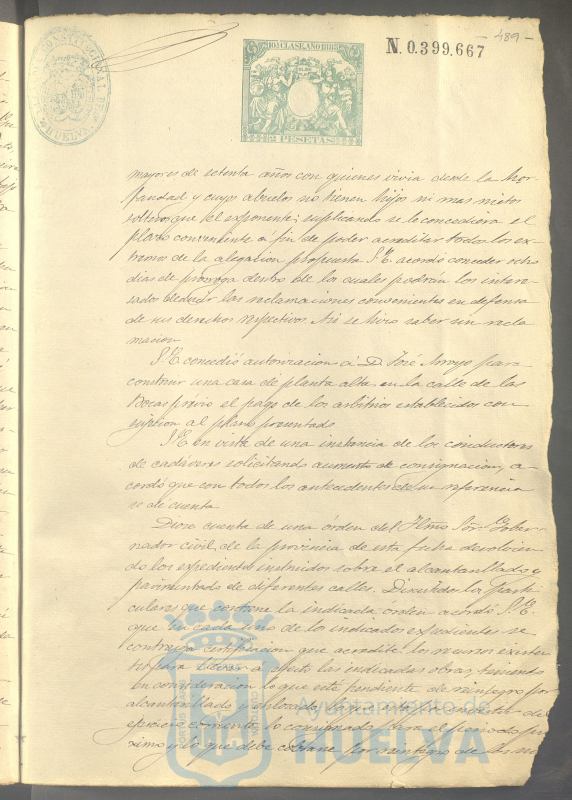 AYUNTAMIENTO CONSTITUCIONAL DE
HUELVA
10ª CLASE. AÑO
2 PESETAS
N. 0.399.667
- 489 -
mayores de setenta años con quienes vivia desde la hor
fandad y cuyos abuelos no tienen hijos ni mas nietos
solteros que el esponente; suplicando se le concediera el
plazo conveniente á fin de poder acreditar todos los ex-
tremos de la alegacion propuesta S.E. acordó conceder ocho
dias de prorroga dentro de los cuales podrán los intere-
sados deducir las reclamaciones convenientes en defensa
de sus derechos respectivos. Así se hizo saber sin recla
macion.
S.E. concedió autorizacion á D. José Arroyo para
construir una casa de planta alta en la calle de las
Bocas previo el pago de los arbitrios establecidos con
sujecion al plano presentado
S.E. en vista de una instancia de los conductores
de cadáveres solicitando aumento de consignacion, a-
cordó que con todos los antecedentes de su referencia
se dé cuenta.
Diose cuenta de una órden del Ilmo Sor. Gober-
nador civil de la provincia de esta fecha devolvien
do los expedientes instruidos sobre el alcantarillado y
pavimentado de diferentes calles. Discutidos los parti-
culares que contiene la indicada orden acordó S.E.
que en cada uno de los indicados expedientes se
contraiga certificacion que acredite los recursos existen
tes para llevar á efecto las indicadas obras, teniendo
en consideracion lo que esté pendiente de reintegro por
alcantarillado y enlosado,
ejercicio corriente lo consignado para el periodo pro
ximo y lo que debe cobrarse por reintegro de las
Ayuntamiento de
HUELVA